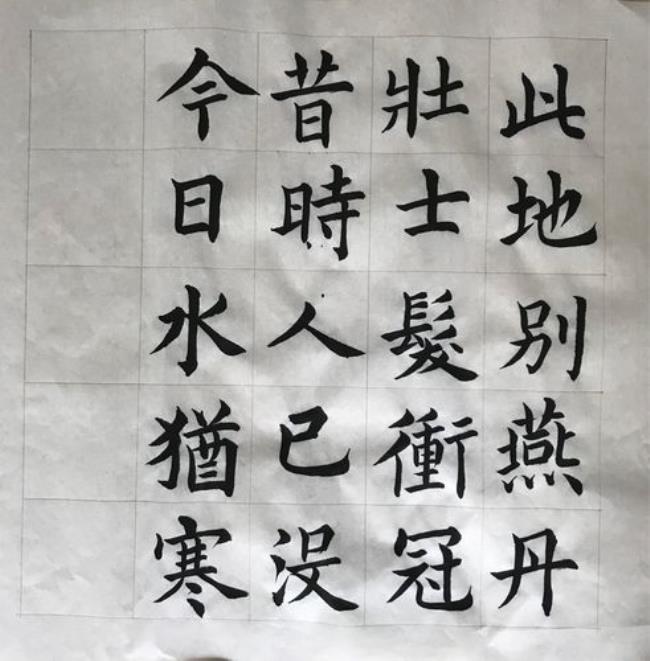 此地别燕丹
壯士髮衝冠
昔時人已没
今日水猶寒